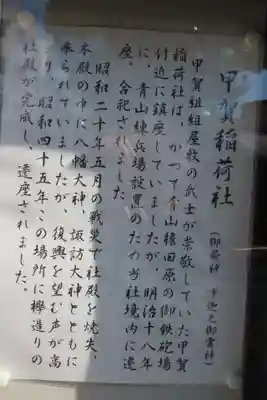 甲賀稲荷社
(御祭神 宇迦之御霊神)
甲賀組組屋敷の武士が崇敬していた甲賀
稲荷社は、かつて青山権田原の御鉄砲場
付近に鎮座していましたが、明治十八年
に、青山練兵場設置のため当社境内に遷
座、合祀されました。
昭和二十年五月の戦災で社殿を焼失、
本殿の中に八幡大神、諏訪大神とともに
祭られていましたが、復興を望む声が高
まり、昭和四十五年この場所に欅造りの
社殿が完成し、遷座されました。